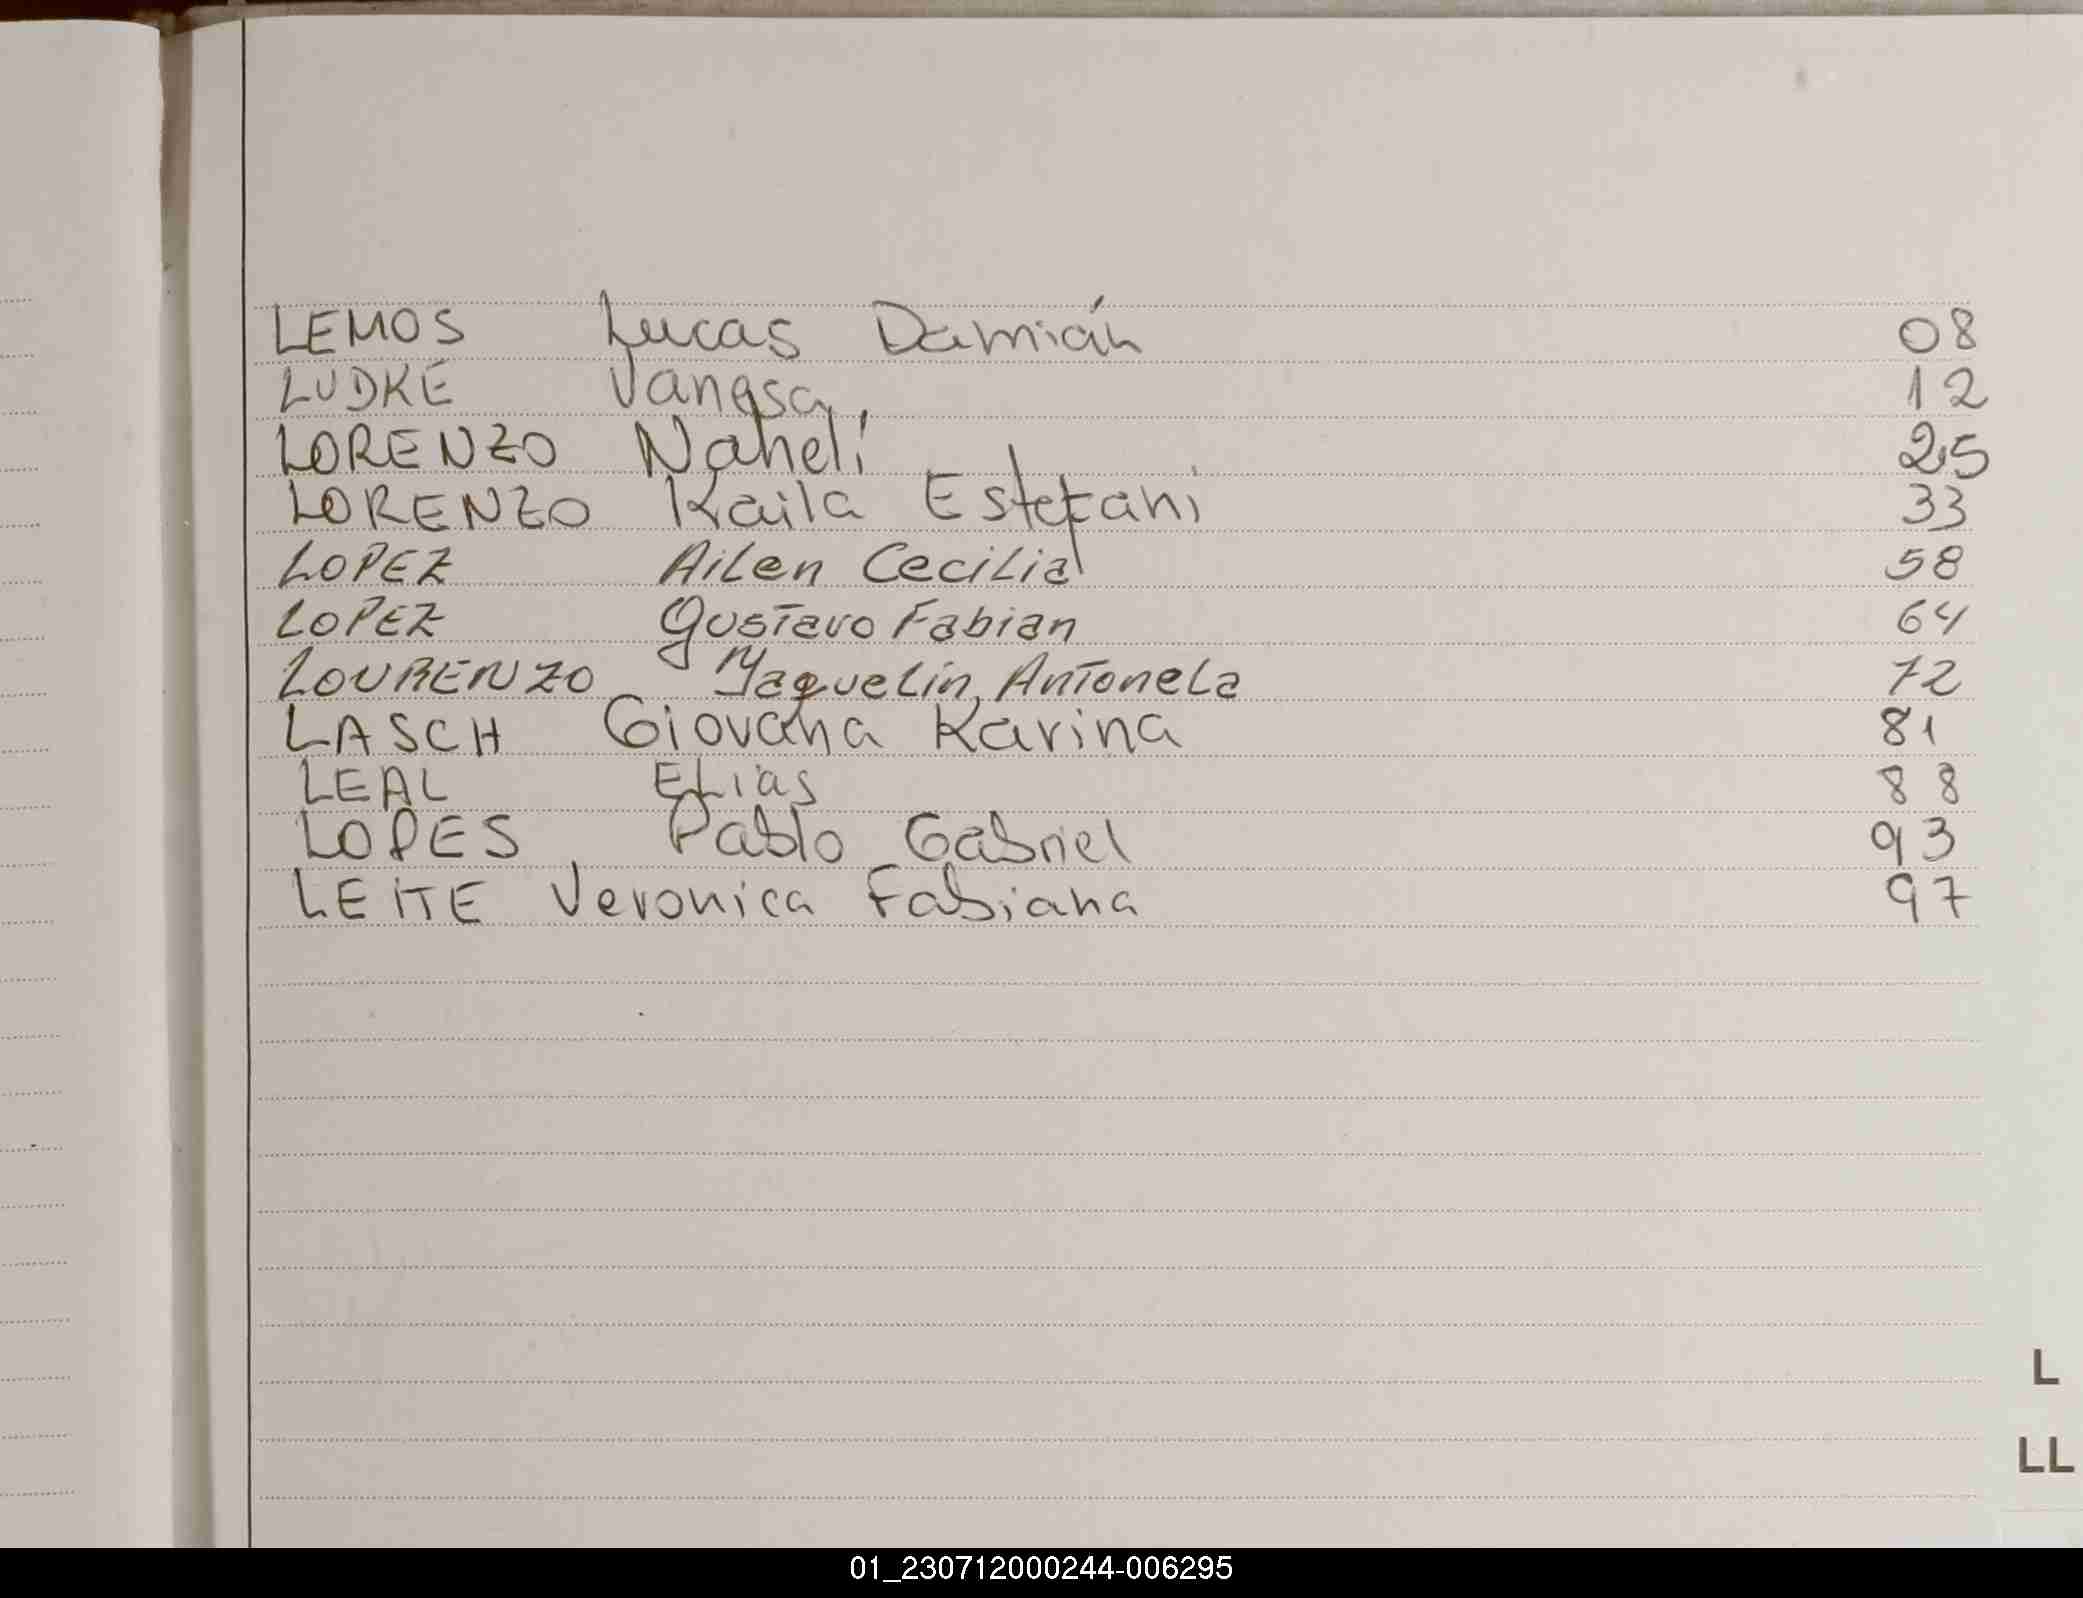 LEMOS Lucas Damián 08
LUDKE Vanesa 12
LORENZO Nahelí 25
LORENZO Kaila Estefani 33
LOPEZ Ailen Cecilia 58
LOPEZ Gustavo Fabian 64
LOURENZO Yaquelin Antonela 72
LASCH Giovana Karina 81
LEAL Elias 88
LOPES Pablo Gabriel 93
LEITE Veronica Fabiana 97
L
LL
01_230712000244-006295